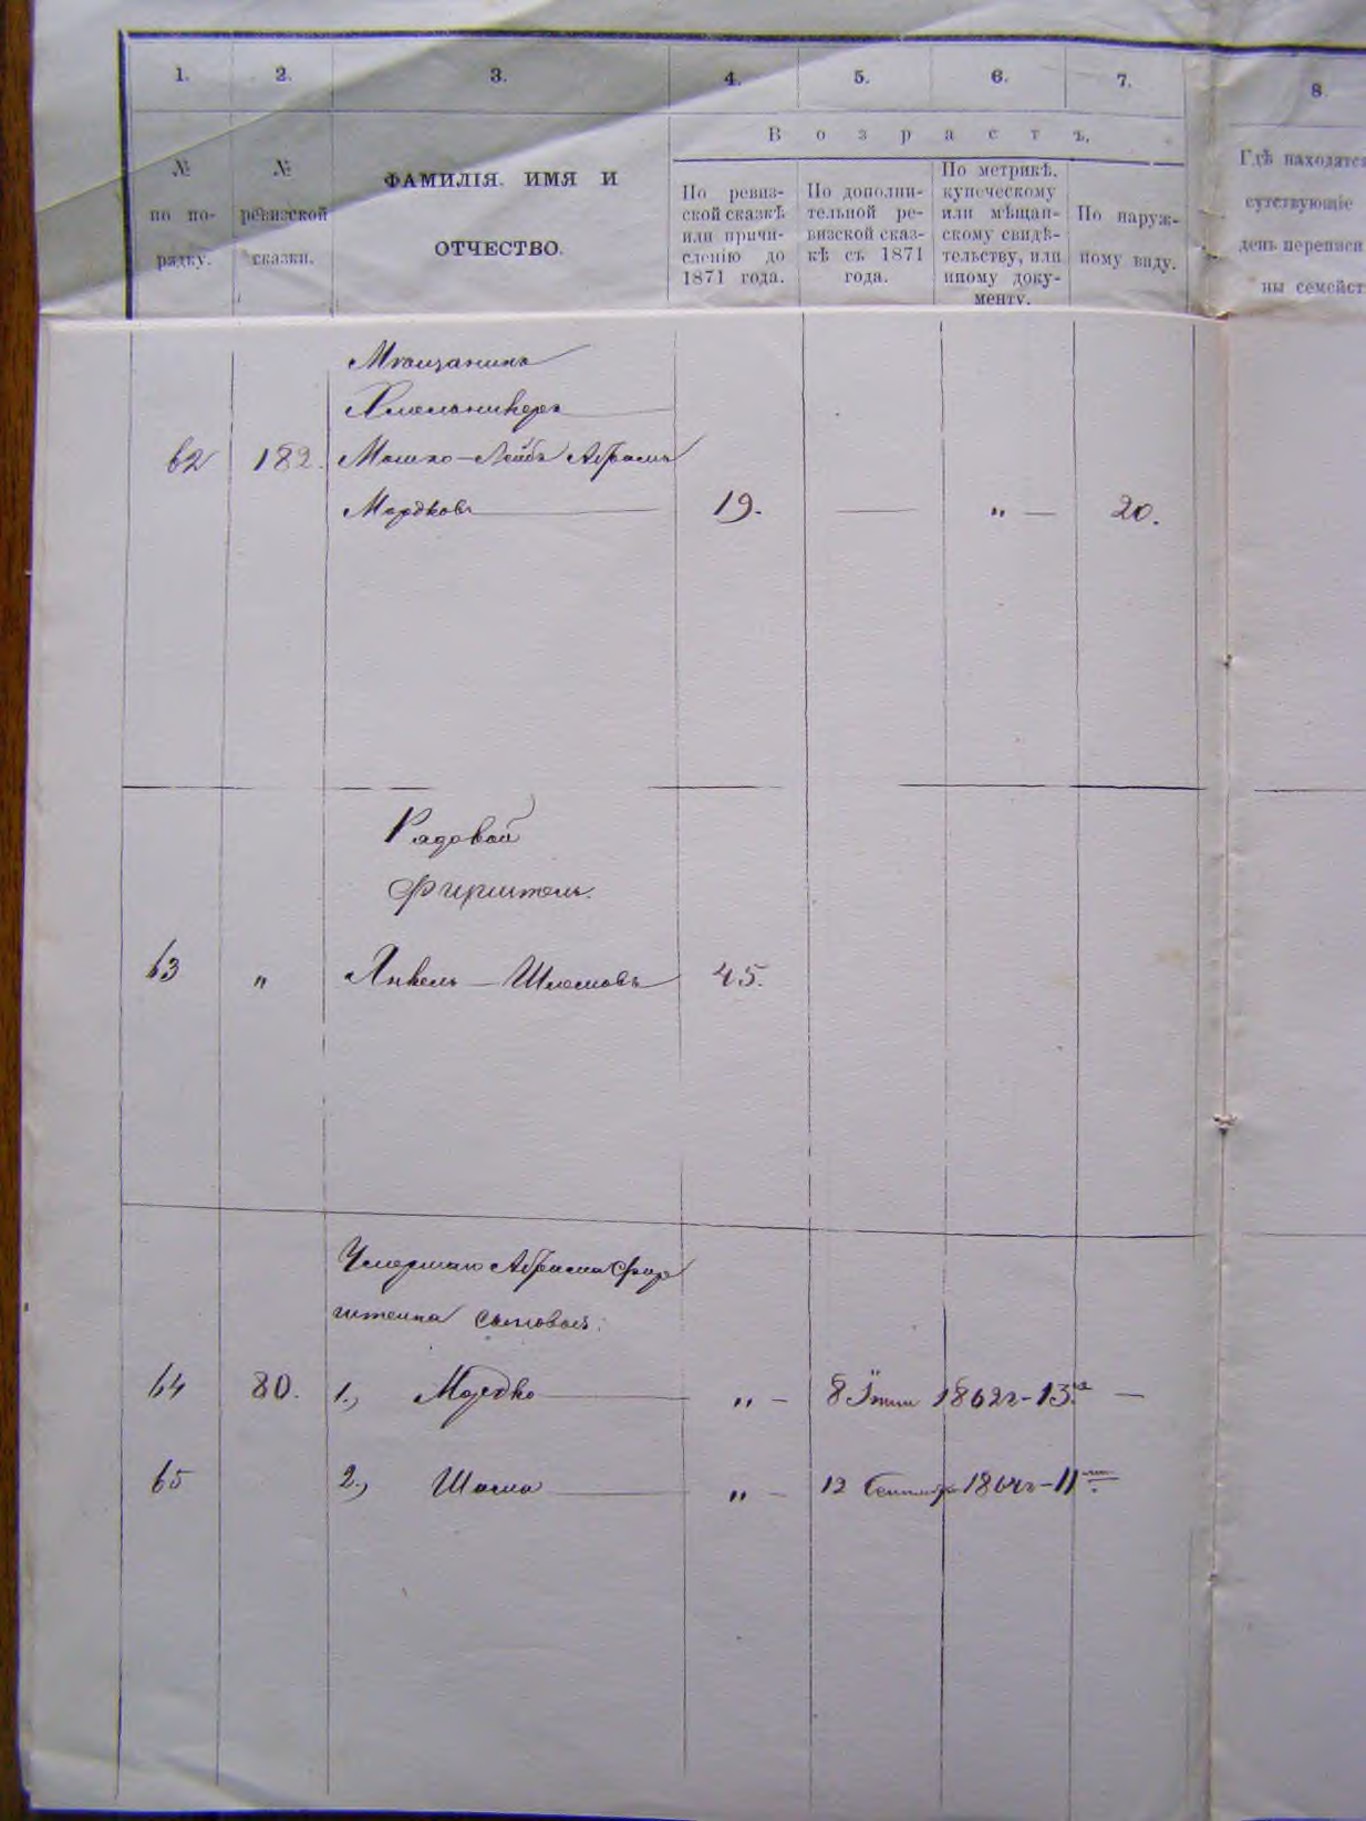 1. 2. 3. 4. 5. 6. 7. 8.
В о з р а с т ъ.
№ по по- рядку.
№ ревизской сказки.
ФАМИЛІЯ. ИМЯ И
ОТЧЕСТВО.
По ревиз-
ской сказкѣ
или причи-
сленію до
1871 года.
По дополни-
тельной ре-
визской сказ-
кѣ съ 1871
года.
По метрикѣ,
купеческому
или мѣщан-
скому свидѣ-
тельству, или
иному доку-
менту.
По наруж-
ному виду.
Гдѣ находятся
сутствующіе
день переписи
ны семейст
Мѣщанинъ
Хмельникеръ
62 182. Мошко-Лейбъ Абрамъ
Мордковъ 19. — " — 20.
Рядовой
Фирштель.
63 " Янкель-Шлемовъ 45.
Умершаго Абрама Фир
штеина сыновья:
64 80. 1., Мордко " — 8 Іюня 1862г-13. —
65 2., Шлема " — 12 Сентября 1864г-11 лѣт